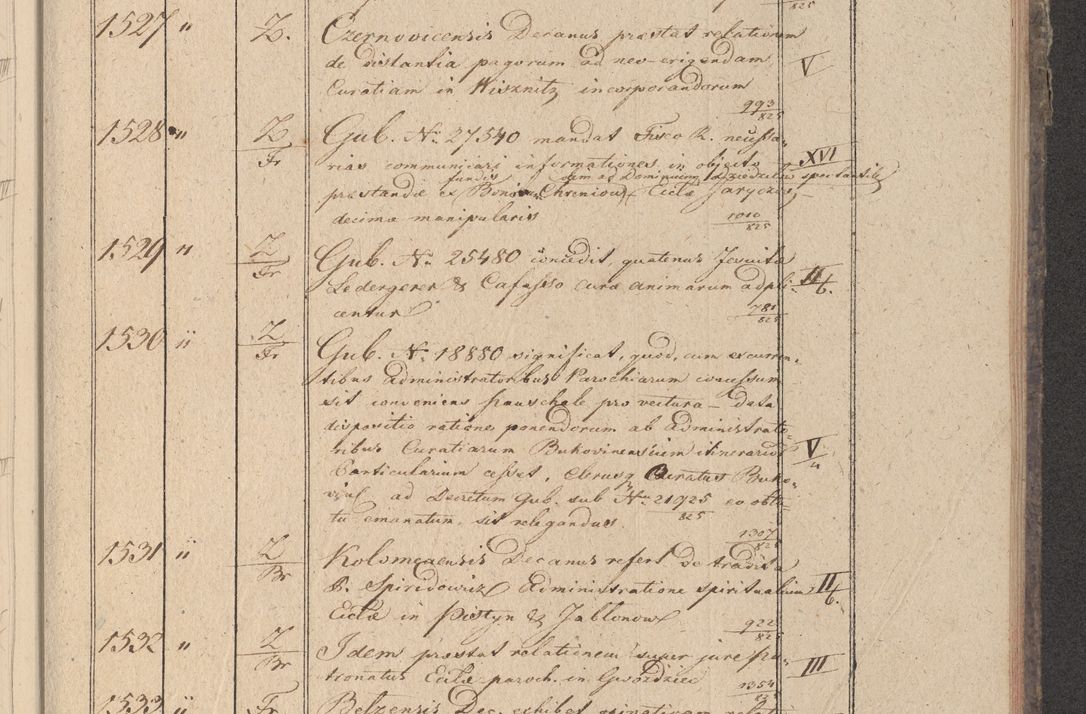 825
1527 " Z. Czernovicensis Decanus præstat relationem
de distantia pagorum ad neo-erigendam V
Curatiam in Wisznitz incorporandorum
993/825
1528 " Z/Fr Gub. Nr. 27540 mandat Fisco R. necessa-
rias communicari informationes in objecto XVI
fundis olim ad Dominium spectantibus
præstandæ ex Bonis Chreniow Eccłæ Jaryczov
decimæ manipularis 1010/825
1529 " Z/Fr Gub. Nr. 25480 concedit, quatenus Jesuitæ
Ledergerer & Cafasso curæ animarum adpli- II/b.
centur 781/825
1530 " Z/Fr Gub. Nr. 18880 significat, quod, cum excurren-
tibus Administratoribus Parochiarum concessum
sit conveniens pauschale pro vectura - data
dispositio ratione ponendorum ab Administrato-
ribus Curatiarum Bukovinensium itinerario V
Particularium cesset, Clerusq Curatus Buko-
vin ad Decretum Gub. sub Nr. 21925/825 eo obtu-
tu emanatum, sit relegandus.
1307/825
1531 " Z/Br Kolomeaensis Decanus refert de tradita
P. Spiridowicz Administratione spiritualium II/b.
Eccłæ in Pistyn & Jablonow
922/825
1532 " Z/Br Idem præstat relationem super jure pa-
tronatus Eccłæ paroch. in Gwoździec III
1354/825
1533 " Fr Belzensis Dec. exhibet